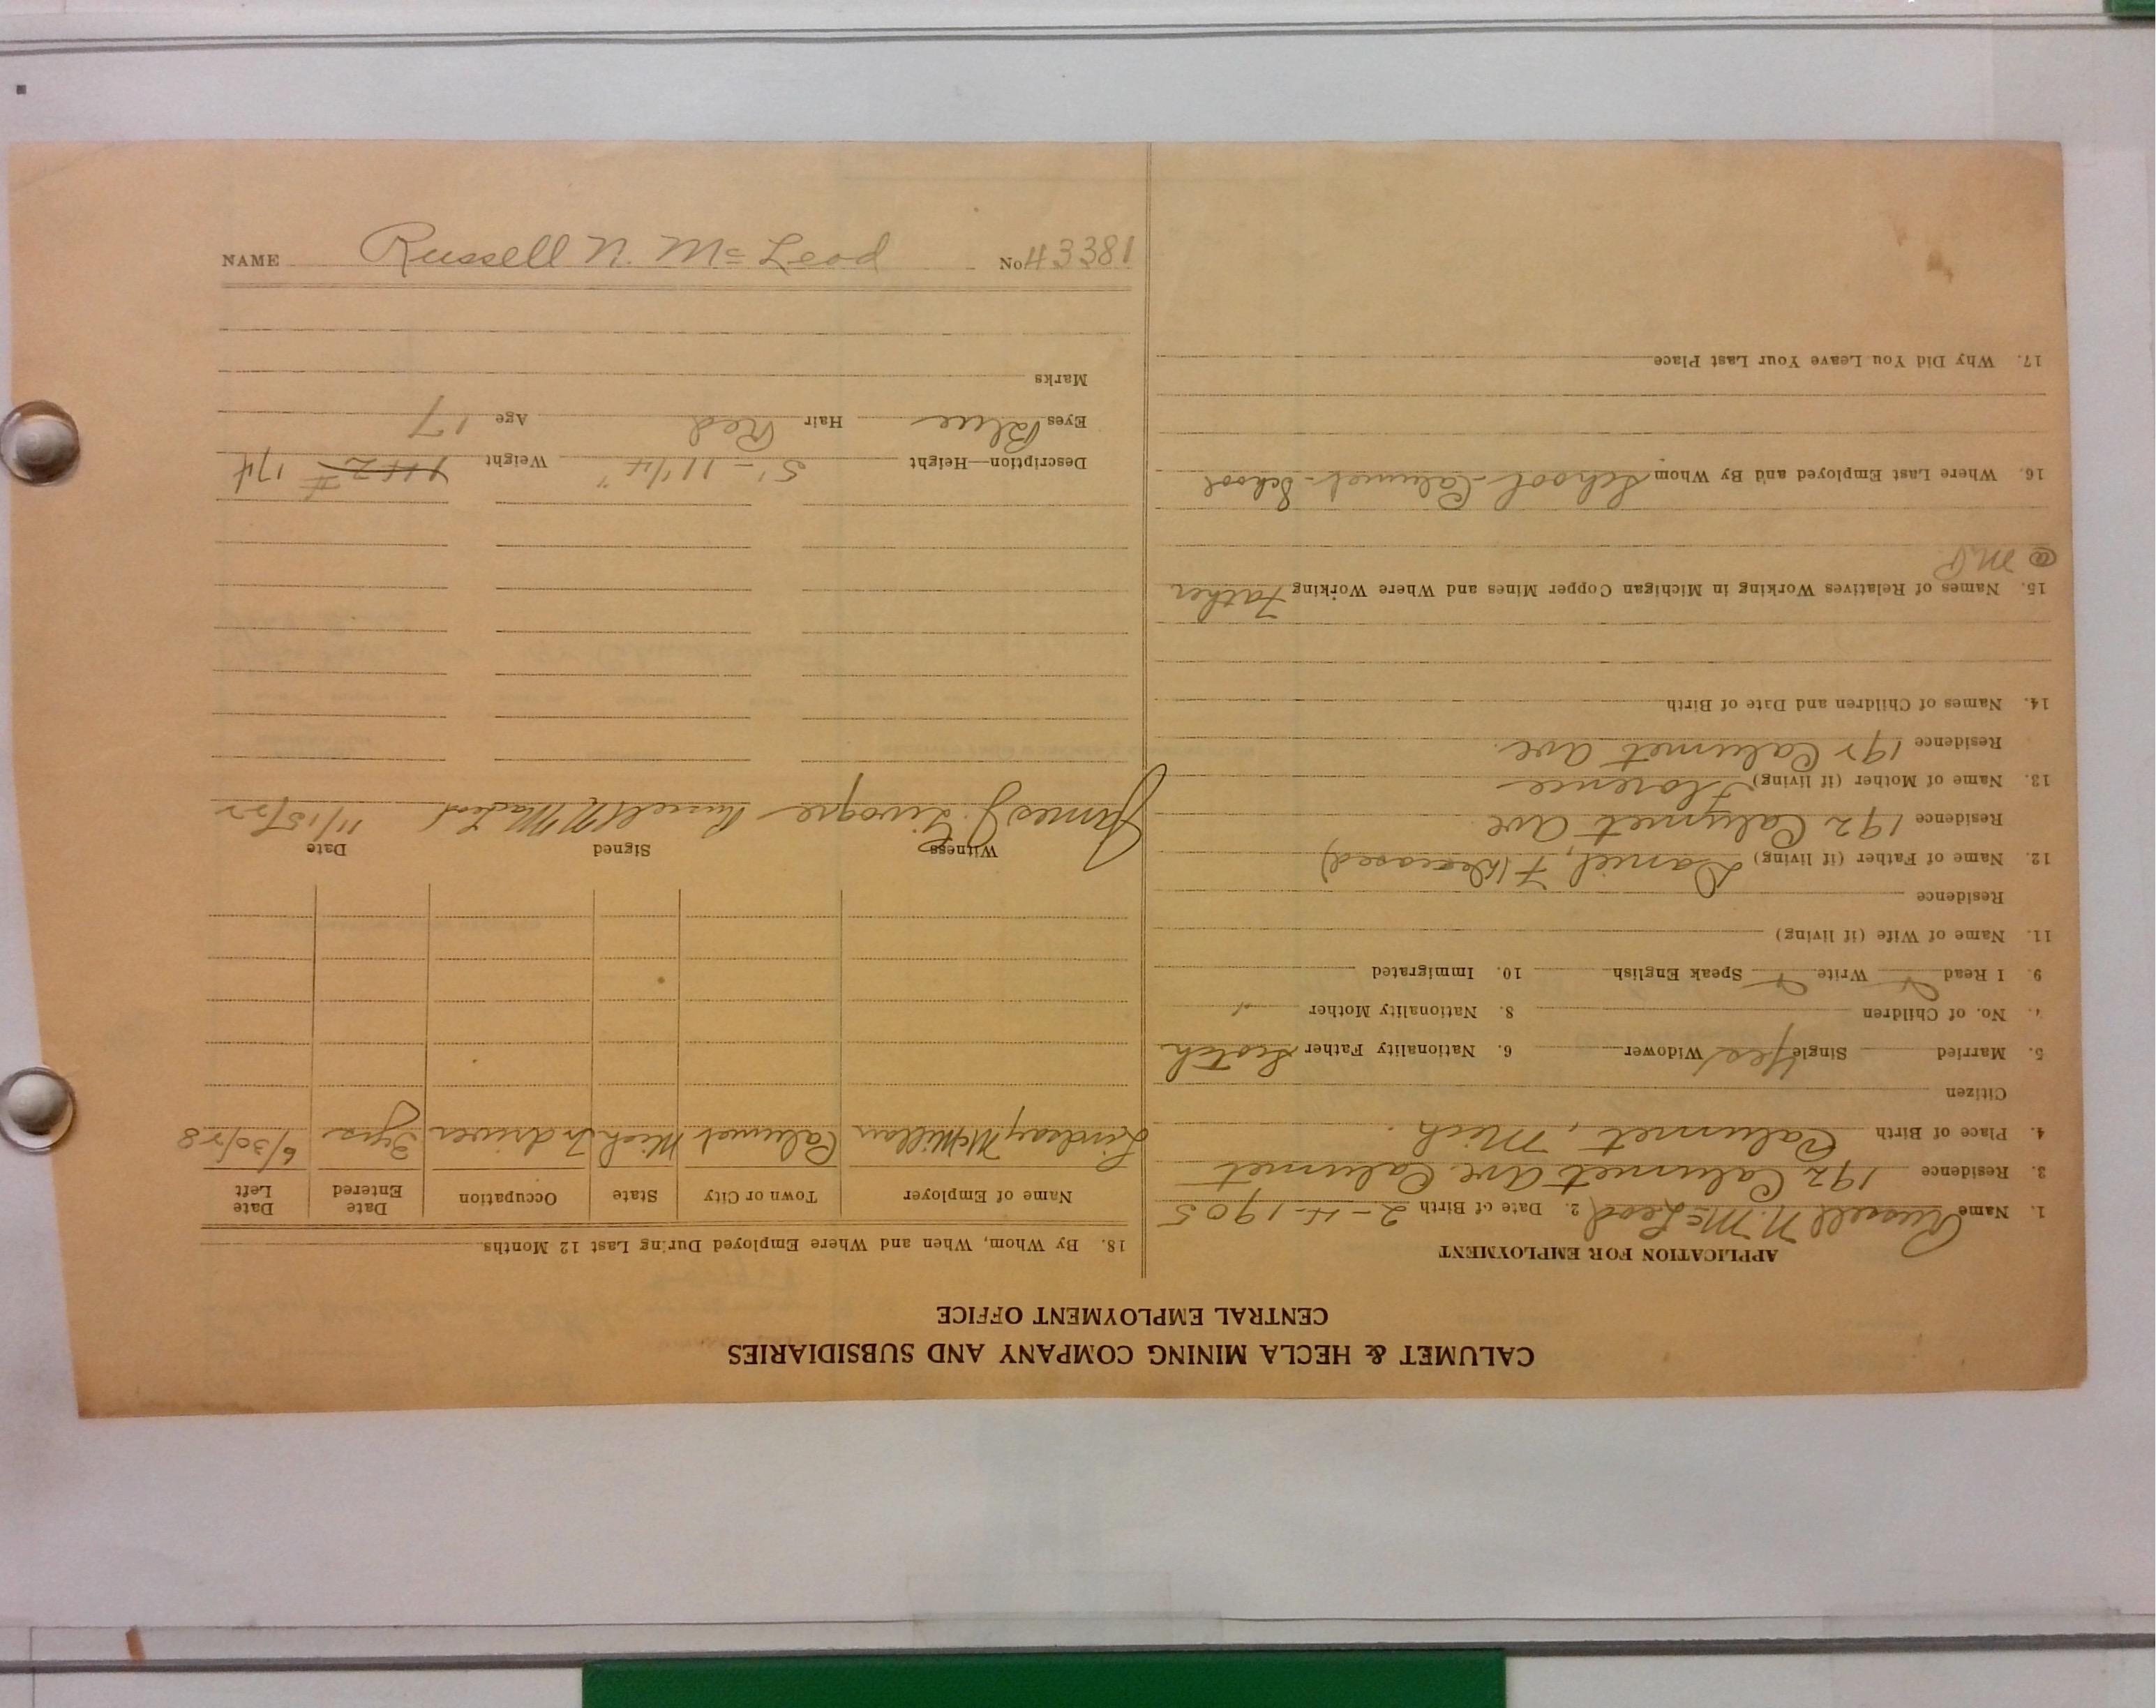 CALUMET & HECLA MINING COMPANY AND SUBSIDIARIES
CENTRAL EMPLOYMENT OFFICE
APPLICATION FOR EMPLOYMENT
1. Name Russell N. McLeod 2. Date of Birth 2-4-1905
3. Residence 192 Calumet Ave Calumet
4. Place of Birth Calumet, Mich.
Citizen
5. Married Single Yes Widower 6. Nationality Father Scotch
7. No. of Children 8. Nationality Mother
9. I Read Write Speak English 10. Immigrated
11. Name of Wife (if living)
Residence
12. Name of Father (if living) Daniel, F (Deceased)
Residence 192 Calumet Ave
13. Name of Mother (if living) Florence
Residence 192 Calumet Ave.
14. Names of Children and Date of Birth
15. Names of Relatives Working in Michigan Copper Mines and Where Working Father
@ M.P.
16. Where Last Employed and By Whom School - Calumet - School
17. Why Did You Leave Your Last Place
18. By Whom, When and Where Employed During Last 12 Months
Name of Employer Town or City State Occupation Date Entered Date Left
Lindsay McMillan Calumet Mich Tr driver 3 yrs 6/30/28
Witness Signed Date
James J. Russell N. MacLeod 11/15/22
Description—Height 5'-11 1/4" Weight 142# 174
Eyes Blue Hair Red Age 17
Marks
NAME Russell N. McLeod No 43381